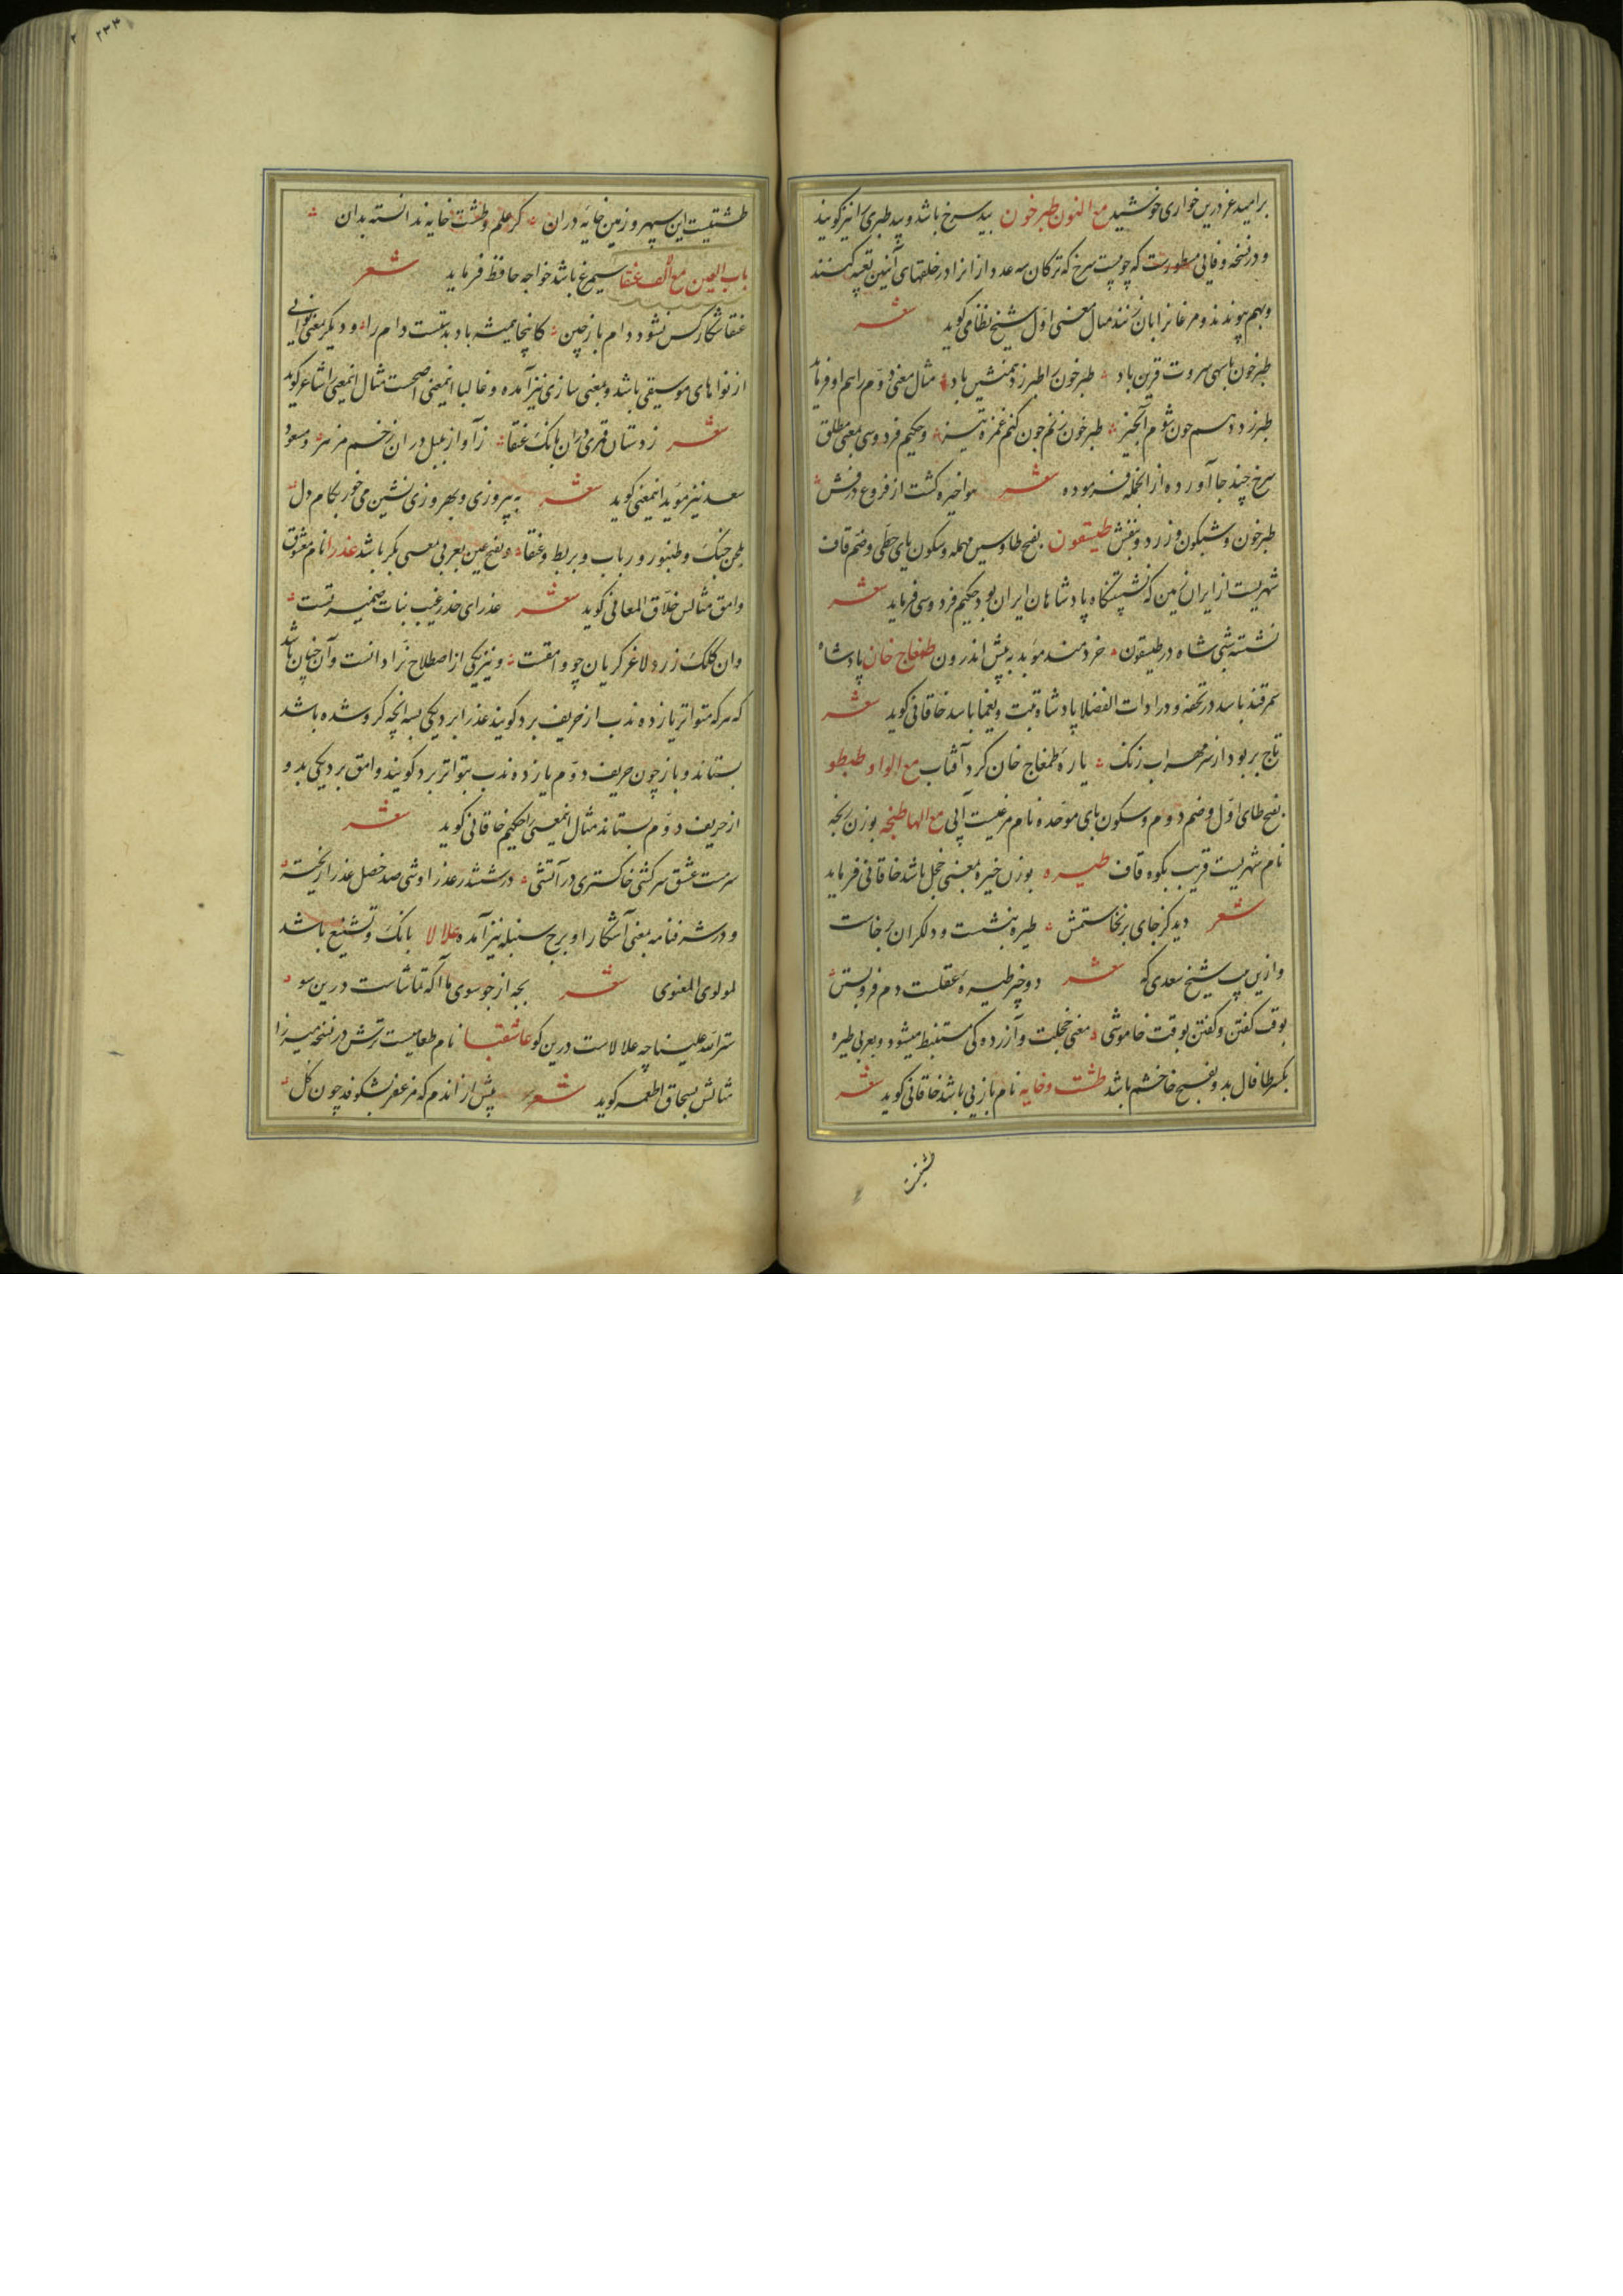 بر امید عز درین خواری خوش شید مع النون طبرخون بید سرخ باشد و بید طبری را نیز گویند
و در نسخه وفائی مسطورست که چوبیست سرخ که ترکان سه عدد از انرا در حلقهای آهنین تعبیه کنند
و بهم پیوندند و مرغانرا بان زنند مثال معنی اول شیخ نظامی گوید شعر
طبرخون با سهی سروت قرین باد طبرخون را طبرزد همنشین باد مثال معنی دوم را هم او فرماید
طبرزد دهم چون شوم انگیز طبرخون زنم چون کنم غمزه تیز و حکیم فردوسی بمعنی مطلق
سرخ چند جا آورده از انجمله فرموده شعر هوا خیره گشت از فروغ درفش
طبرخون و شبگون و زرد و بنفش طیسفون بفتح طا و سین مهمله و سکون یای حطی و ضم قاف
شهریست از ایران زمین که نشستنگاه پادشاهان ایران بود حکیم فردوسی فرماید شعر
نشسته شبی شاه در طیسفون خردمند موبد به پیش اندرون طمغاج خان پادشاه
سمرقند باشد در تحفه و در ادات الفضلا پادشاه تبت و یغما باشد خاقانی گوید شعر
تاج بربود از سر مهراب زنگ یاره طمغاج خان کرد آفتاب مع الواو طبطو
بفتح طای اول و ضم دوم و سکون بای موحده نام مرغیست آبی مع الها طنجه بوزن رنجه
نام شهریست قریب بکوه قاف طیره بوزن خیره بمعنی خجل باشد خاقانی فرماید
شعر دید کز جای برنخاستمش طیره بنشست و دلگران برخاست
و ازین بیت شیخ سعدی که شعر دو چیز طیره عقلست دم فرو بستن
بوقت گفتن و گفتن بوقت خاموشی معنی خجلت و آزردگی مستنبط میشود و بعربی طیره
بکسر طا فال بد و بفتح خا خشم باشد طشت و خایه نام بازیی باشد خاقانی گوید شعر
طشتیست این سپهر و زمین خایه دران گر علم طشت و خایه ندانسته بدان
باب العین مع الف عنقا سیمرغ باشد خواجه حافظ فرماید شعر
عنقا شکار کس نشود دام باز چین کانجا همیشه باد بدستست دام را و دیگر بمعنی نوائی
از نواهای موسیقی باشد و بمعنی سازی نیز آمده و غالبا اینمعنی اصحست مثال اینمعنی را شاعر گوید
شعر ز دستان قمری دران بانگ عنقا ز آواز بلبل دران زخم مزمر و مسعود
سعد نیز مؤید اینمعنی گوید شعر به پیروزی و بهروزی نشین می خور بکام دل
بلحن چنگ و طنبور و رباب و بربط و عنقا و بفتح عین بعربی بمعنی بکر باشد عذرا نام معشوق
وامق مثالش خلاق المعانی گوید شعر عذرای خدر غیب نبات ضمیر تست
وان کلک زرد لاغر گریان چو وامقست و نیز یکی از اصطلاح نرادانست و آن چنان باشد
که هر که متواتر یازده ندب از حریف برد گویند عذرا برد یکی بسه انچه گرو شده باشد
بستاند و باز چون حریف دوم یازده ندب بتواتر برد گویند وامق برد یکی بد و
از حریف دوم بستاند مثال اینمعنی را حکیم خاقانی گوید شعر
سرمست عشق سرکشی خاکستری در آتشی در ششدر عذرا وشی صد خصل عذرا ریخته
و در شرفنامه بمعنی آشکارا و برج سنبله نیز آمده علالا بانگ و تشنیع باشد
لمولوی المعنوی شعر بجه از جو سوی ما آ که تماشاست درین سو
سترالله علینا چه علالاست درین کو عاشقبا نام طعامیست ترش در نسخه میرزا
مثالش بسحاق اطعمه گوید شعر پیش از اندم که مزعفر بشکوفد چون گل
طشتیست